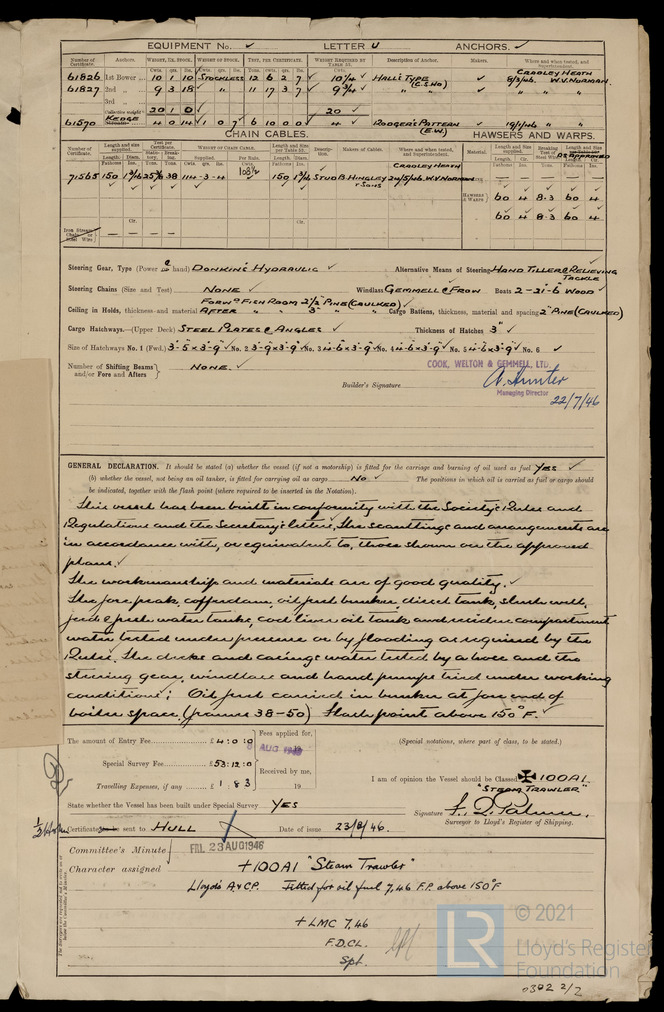 EQUIPMENT No. ✓ LETTER U ANCHORS. ✓
Number of Certificate. Anchors. WEIGHT, EX. STOCK. WEIGHT OF STOCK. TEST, PER CERTIFICATE. WEIGHT REQUIRED BY TABLE 53. Description of Anchor. Makers. Where and when tested, and Superintendent.
61826 1st Bower 10 1 10 STOCKLESS 12 6 2 7 ✓ 10¼ ✓ HALL'S TYPE ✓ CRADLEY HEATH 8/3/46 W.V. NORMAN.
61827 2nd „ 9 3 18 ✓ „ 11 17 3 7 ✓ 9¾ ✓ „ „ ✓ „ „ „
3rd „
Collective weight 20 1 0 ✓ 20 ✓
61570 KEDGE 4 0 14 ✓ 1 0 7 ✓ 6 10 0 0 ✓ 4 ✓ RODGER'S PATTERN (E.W.) ✓ 19/1/46 „ „
CHAIN CABLES. HAWSERS AND WARPS.
Number of Certificate. Length and size supplied. Test per Certificate. WEIGHT OF CHAIN CABLE. Length and Size per Table 53. Description. Makers of Cables. Where and when tested, and Superintendent. Material. Length and size supplied. Breaking Test of Steel Wire.
Length. Diam. Statutory. Breaking. Supplied. Per Rule. Length. Diam.
CRADLEY HEATH
71565 150 114-3-4 108½ 150 STUD B. HINGLEY & SONS 24/5/46. W.V. NORMAN
HAWSERS & WARPS 60 4 8.3 60 4
60 4 8.3 60 4
Iron Stream Chain or Steel Wire
Steering Gear, Type (Power or hand) DONKIN'S HYDRAULIC ✓ Alternative Means of Steering HAND TILLER & RELIEVING TACKLE
Steering Chains (Size and Test) NONE ✓ Windlass GEMMELL & FROW Boats 2-21'-6" WOOD ✓
FORWD FISH ROOM 2½" PINE (CAULKED) ✓
Ceiling in Holds, thickness and material AFTER „ „ 3" „ „ Cargo Battens, thickness, material and spacing 2" PINE (CAULKED)
Cargo Hatchways.—(Upper Deck) STEEL PLATES & ANGLES ✓ Thickness of Hatches 3" ✓
Size of Hatchways No. 1 (Fwd.) 3'-5"x3'-9" ✓ No. 2 3'-9"x3'-9" ✓ No. 3 4'-6"x3'-9" ✓ No. 4 4'-6"x3'-9" ✓ No. 5 4'-6"x3'-9" ✓ No. 6 ✓
Number of Shifting Beams and/or Fore and Afters } NONE. ✓
COOK, WELTON & GEMMELL, LTD.
Builder's Signature A. Hunter
Managing Director
22/7/46
GENERAL DECLARATION. It should be stated (a) whether the vessel (if not a motorship) is fitted for the carriage and burning of oil used as fuel YES ✓
(b) whether the vessel, not being an oil tanker, is fitted for carrying oil as cargo No ✓ The positions in which oil is carried as fuel or cargo should
be indicated, together with the flash point (where required to be inserted in the Notation).
This vessel has been built in conformity with the Society's Rules and
Regulations and the Secretary's letters, the scantlings and arrangements are
in accordance with, or equivalent to, those shown on the approved
plans. ✓
The workmanship and materials are of good quality. ✓
The fore peak, cofferdam, oil fuel bunker, diesel tank, slush well,
feed & fresh water tanks, cod liver oil tank and residue compartment
water tested under pressure or by flooding as required by the
Rules. The decks and casings water tested by a hose and the
steering gear, windlass and hand pumps tried under working
conditions; Oil fuel carried in bunker at fore end of
boiler space. (frames 38-50) Flash point above 150°F. ✓
The amount of Entry Fee £ 4 : 0 : 0 Fees applied for, (Special notations, where part of class, to be stated.)
AUG 1946
Special Survey Fee £ 53 : 12 : 0 Received by me,
Travelling Expenses, if any £ 1 : 8 : 3 19
I am of opinion the Vessel should be Classed ✠ 100A1
"STEAM TRAWLER"
State whether the Vessel has been built under Special Survey YES
Signature
Surveyor to Lloyd's Register of Shipping.
Certificate to be sent to HULL Date of issue 23/8/46.
Committee's Minute FRI. 23 AUG 1946
Character assigned +100A1 "Steam Trawler"
Lloyd's A & CP. Fitted for oil fuel 7,46 F.P. above 150°F
+ LMC 7.46
F.D.CL.
Spt.
LR
© 2021
Lloyd's Register
Foundation
0302 2/2